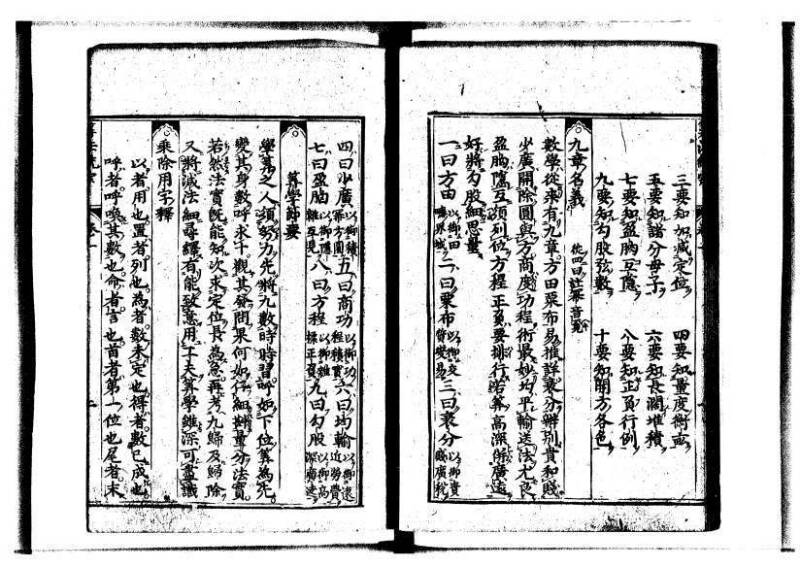 三要知加減定位　四要知量度衡畝
五要知諸分母子　六要知長濶堆積
七要知盈朒互隱　八要知正負行例
九要知勾股弦數　十要知開方各色
九章名義
數學從來有九章方田粟布易推詳衰分辨別貴和賤
少廣開除圓與方商度功程術最妙均平輸送法尤良
盈朒隱互須列位方程正負要排行若算高深併廣遠
好將勾股細思量
一曰方田以御田疇界域二曰粟布以御交質變易三曰衰分以御貴賤廩稅
四曰少廣以御積冪方圓五曰商功以御功程積實六曰均輸以御遠近勞費
七曰盈朒以御隱雜互見八曰方程以御錯揉正負九曰勾股以御高深廣遠
算學節要
學算之人須努力先將九數時時習呼如下位算為先
變其身數呼求十觀其發問果何如仔細斟量分法實
若然法實既能知次求定位長為急再考九歸及歸除
又將減法細尋繹有能致意用工夫算學雖深可盡識
乘除用字釋
以者用也置者列也為者數未定也得者數已成也
呼者呼喚其數也命者言也首者第一位也尾者末